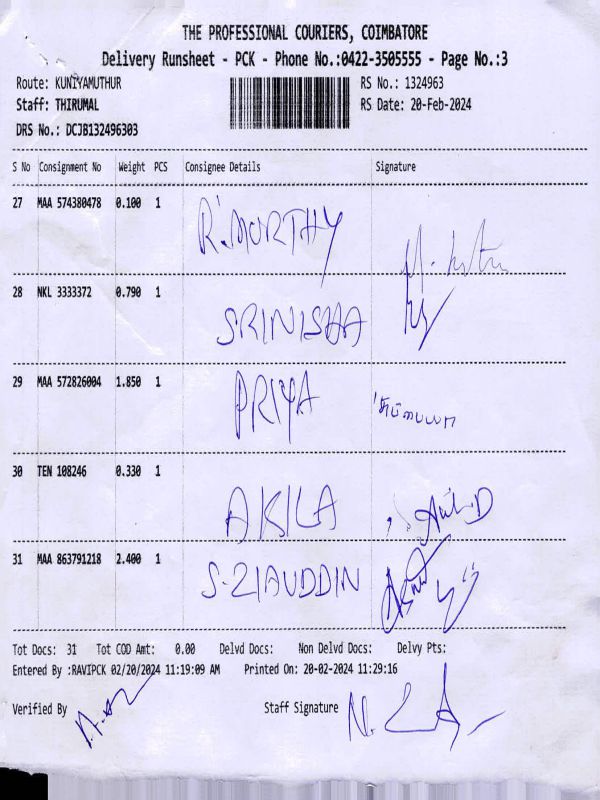 THE PROFESSIONAL COURIERS, COIMBATORE
Delivery Runsheet - PCK - Phone No.:0422-3505555 - Page No.:3
Route: KUNIYAMUTHUR RS No.: 1324963
Staff: THIRUMAL RS Date: 20-Feb-2024
DRS No.: DCJB132496303
S No Consignment No Weight PCS Consignee Details Signature
27 MAA 574380478 0.100 1 R.MURTHY
28 NKL 3333372 0.790 1 SRINISHA
29 MAA 572826004 1.850 1 PRIYA
30 TEN 108246 0.330 1 AKILA
31 MAA 863791218 2.400 1 S-ZIAUDDIN
Tot Docs: 31 Tot COD Amt: 0.00 Delvd Docs: Non Delvd Docs: Delvy Pts:
Entered By :RAVIPCK 02/20/2024 11:19:09 AM Printed On: 20-02-2024 11:29:16
Verified By Staff Signature